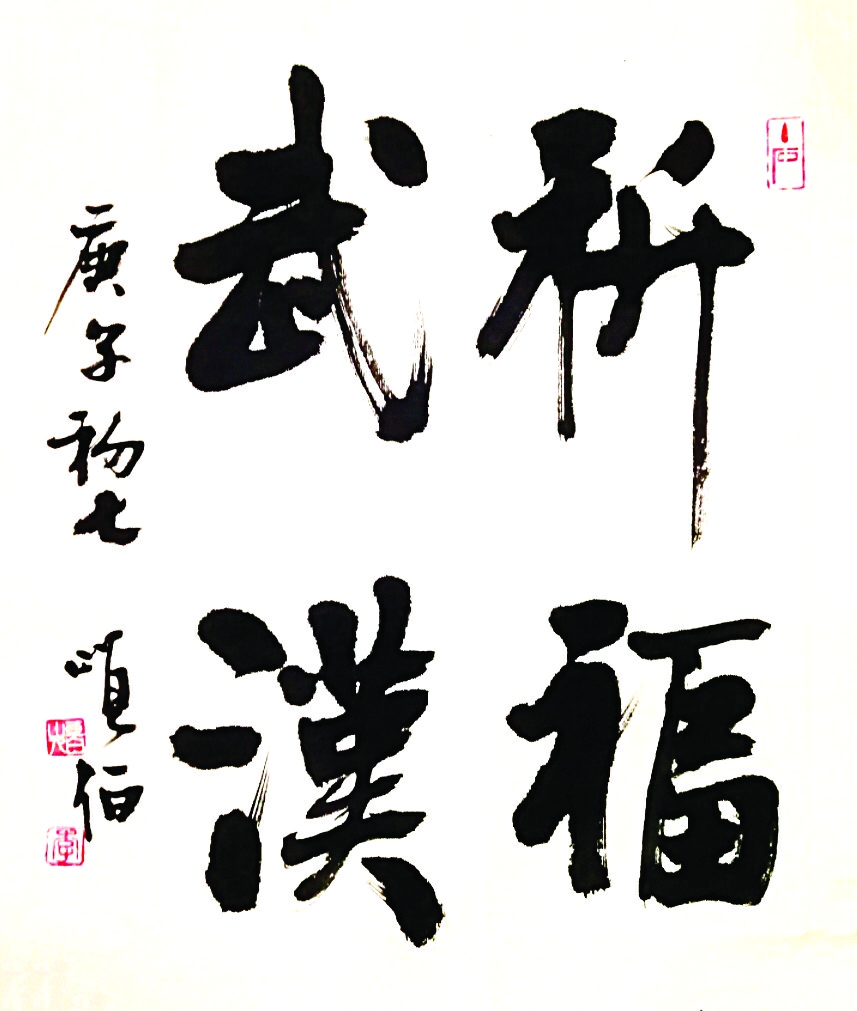 祈福
武漢
庚子初七
伯